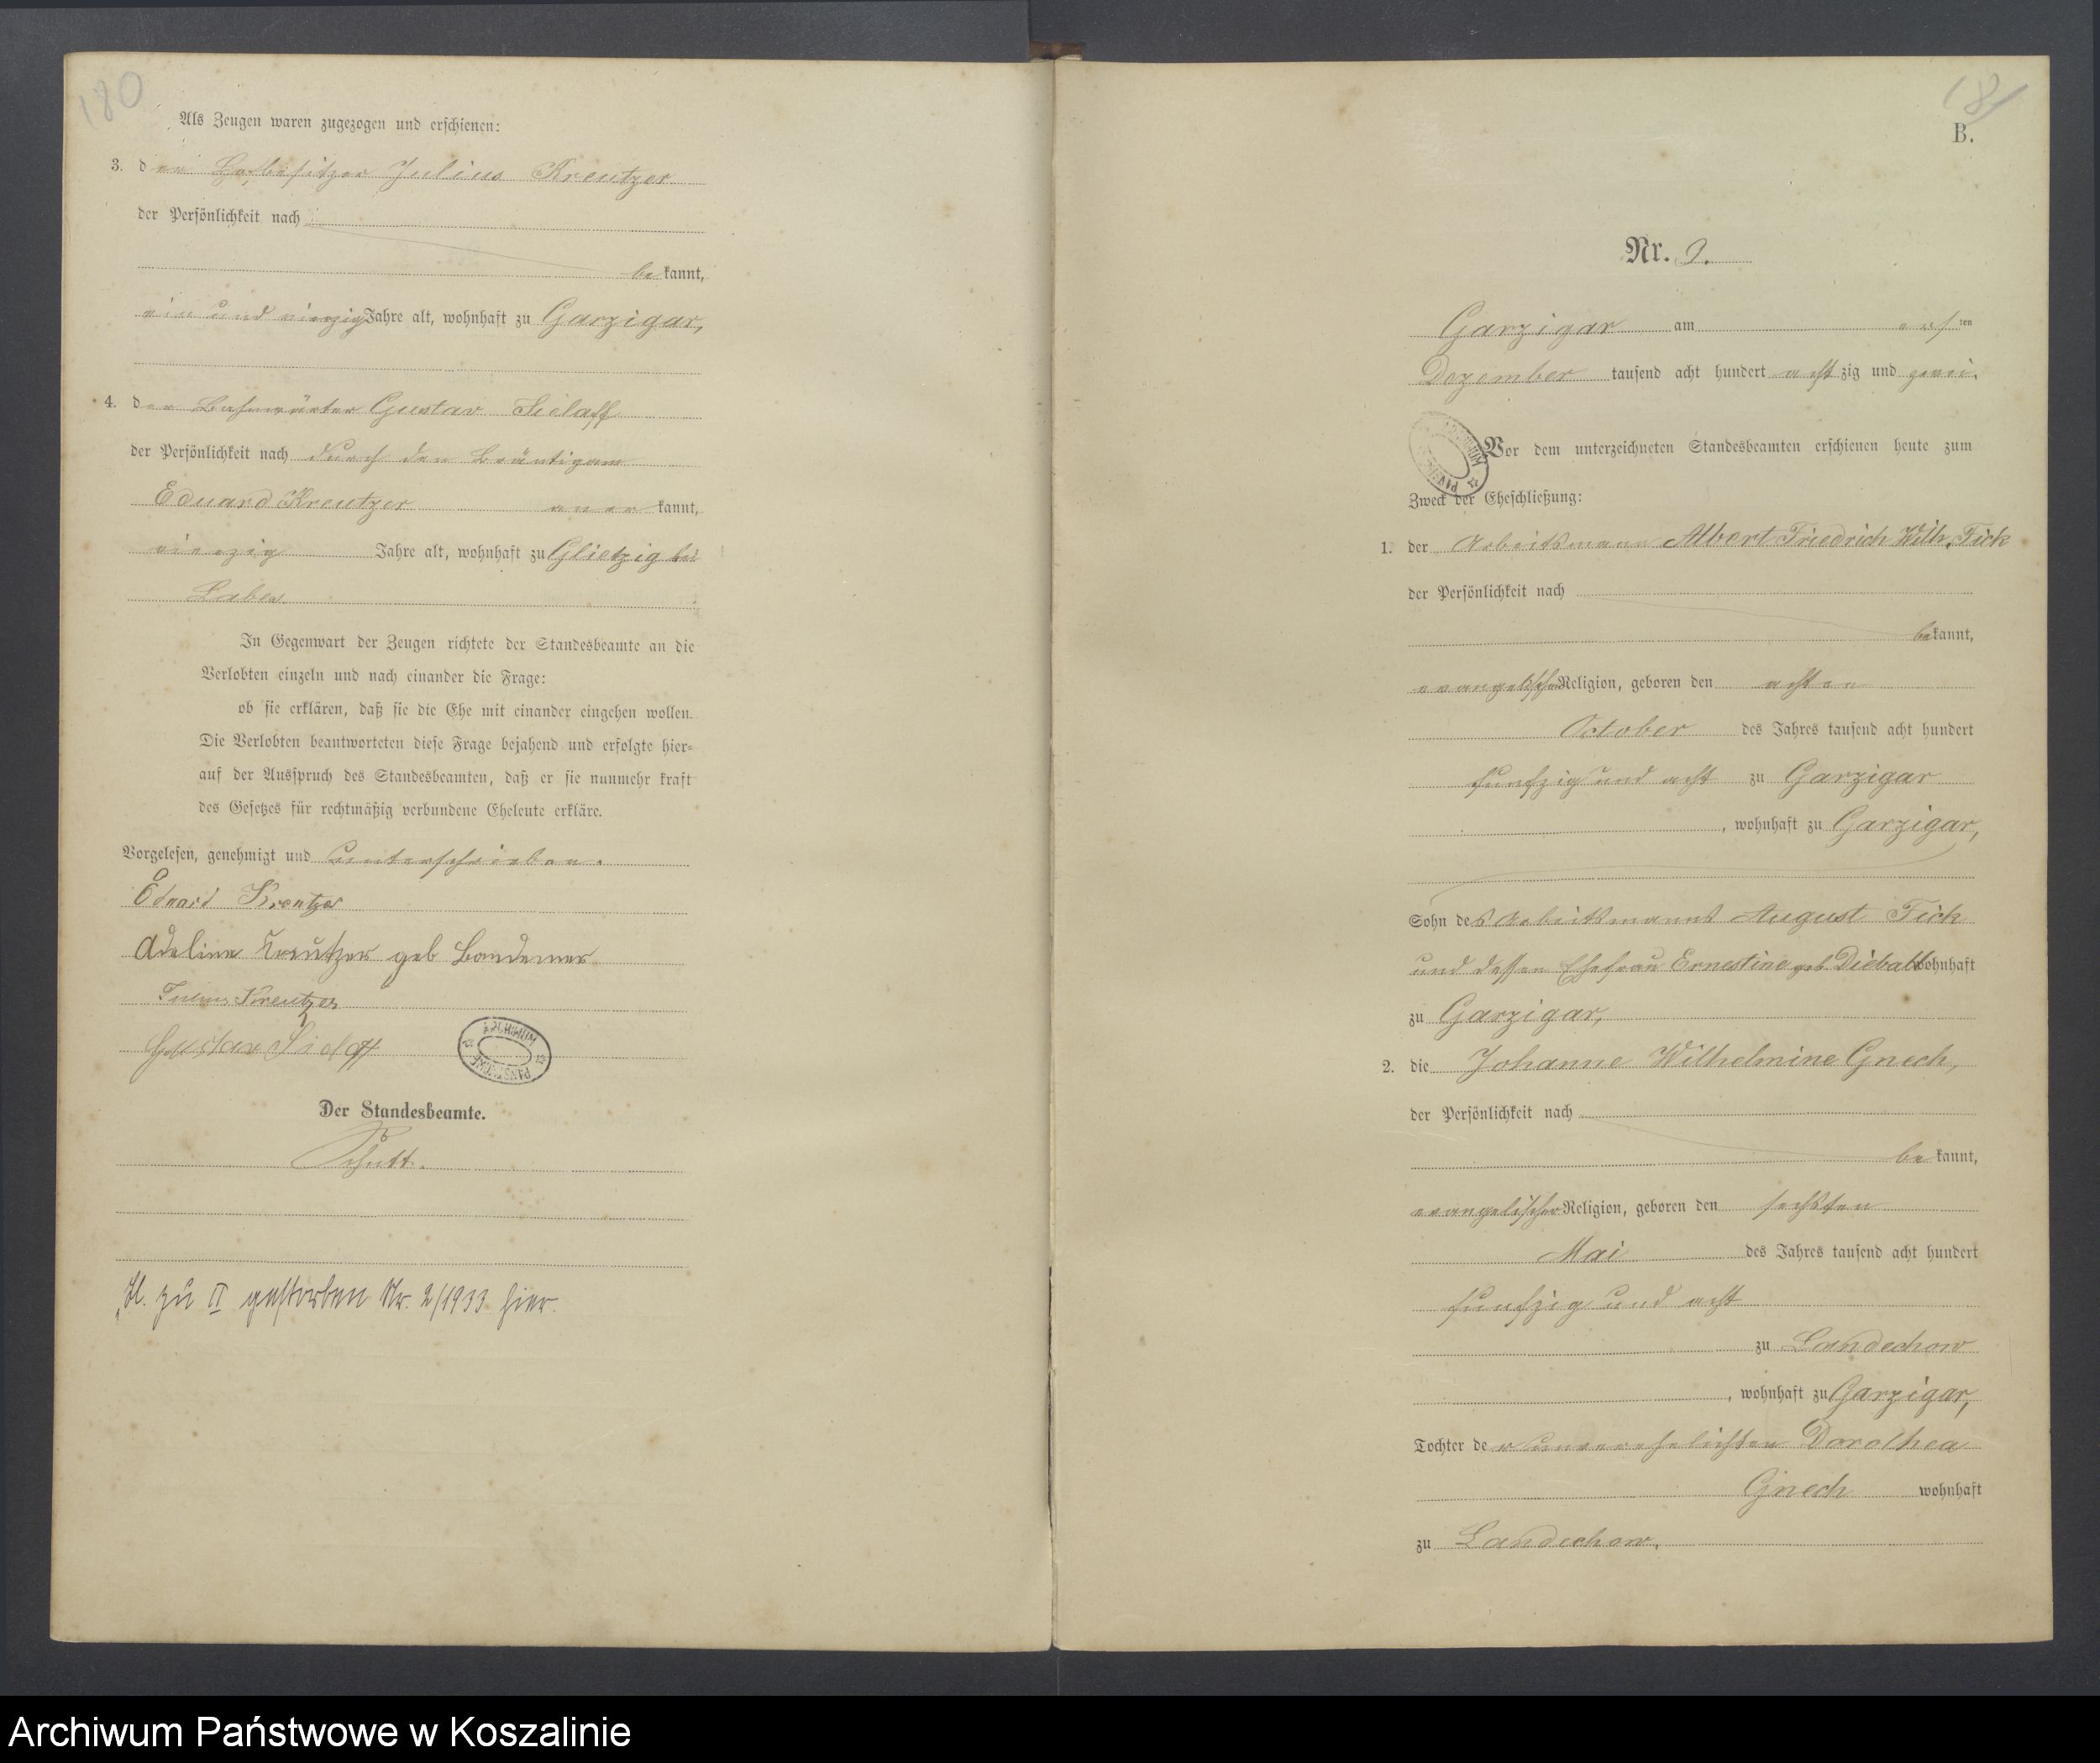 180
Als Zeugen waren zugezogen und erschienen:
3. der Hofbesitzer Julius Kreutzer
der Persönlichkeit nach
bekannt,
ein und vierzig Jahre alt, wohnhaft zu Garzigar,
4. der Bahnwärter Gustav Sielaff
der Persönlichkeit nach durch den Bräutigam
Eduard Kreutzer anerkannt,
vierzig Jahre alt, wohnhaft zu Glietzig bei
Labes.
In Gegenwart der Zeugen richtete der Standesbeamte an die
Verlobten einzeln und nach einander die Frage:
ob sie erklären, daß sie die Ehe mit einander eingehen wollen.
Die Verlobten beantworteten diese Frage bejahend und erfolgte hier=
auf der Ausspruch des Standesbeamten, daß er sie nunmehr kraft
des Gesetzes für rechtmäßig verbundene Eheleute erkläre.
Vorgelesen, genehmigt und unterschrieben.
Eduard Kreutzer
Adeline Kreutzer geb Bandemer
Julius Kreutzer
Gustav Sielaff
ARCHIWUM PAŃSTWOWE
Der Standesbeamte.
Schutt.
H. zu II gestorben Nr. 2/1933 hier.
181
B.
Nr. 9.
Garzigar am ersten
Dezember tausend acht hundert achtzig und zwei.
ARCHIWUM
Vor dem unterzeichneten Standesbeamten erschienen heute zum
Zweck der Eheschließung:
1. der Arbeitsmann Albert Friedrich Wilh. Tick
der Persönlichkeit nach
bekannt,
evangelischer Religion, geboren den achten
October des Jahres tausend acht hundert
funfzig und acht zu Garzigar
, wohnhaft zu Garzigar,
Sohn des Arbeitsmanns August Tick
und dessen Ehefrau Ernestine geb Diball wohnhaft
zu Garzigar,
2. die Johanne Wilhelmine Gnech,
der Persönlichkeit nach
bekannt,
evangelischer Religion, geboren den sechsten
Mai des Jahres tausend acht hundert
funfzig und acht
zu Landechow
, wohnhaft zu Garzigar,
Tochter der unverehelichten Dorothea
Gnech wohnhaft
zu Landechow.
Archiwum Państwowe w Koszalinie